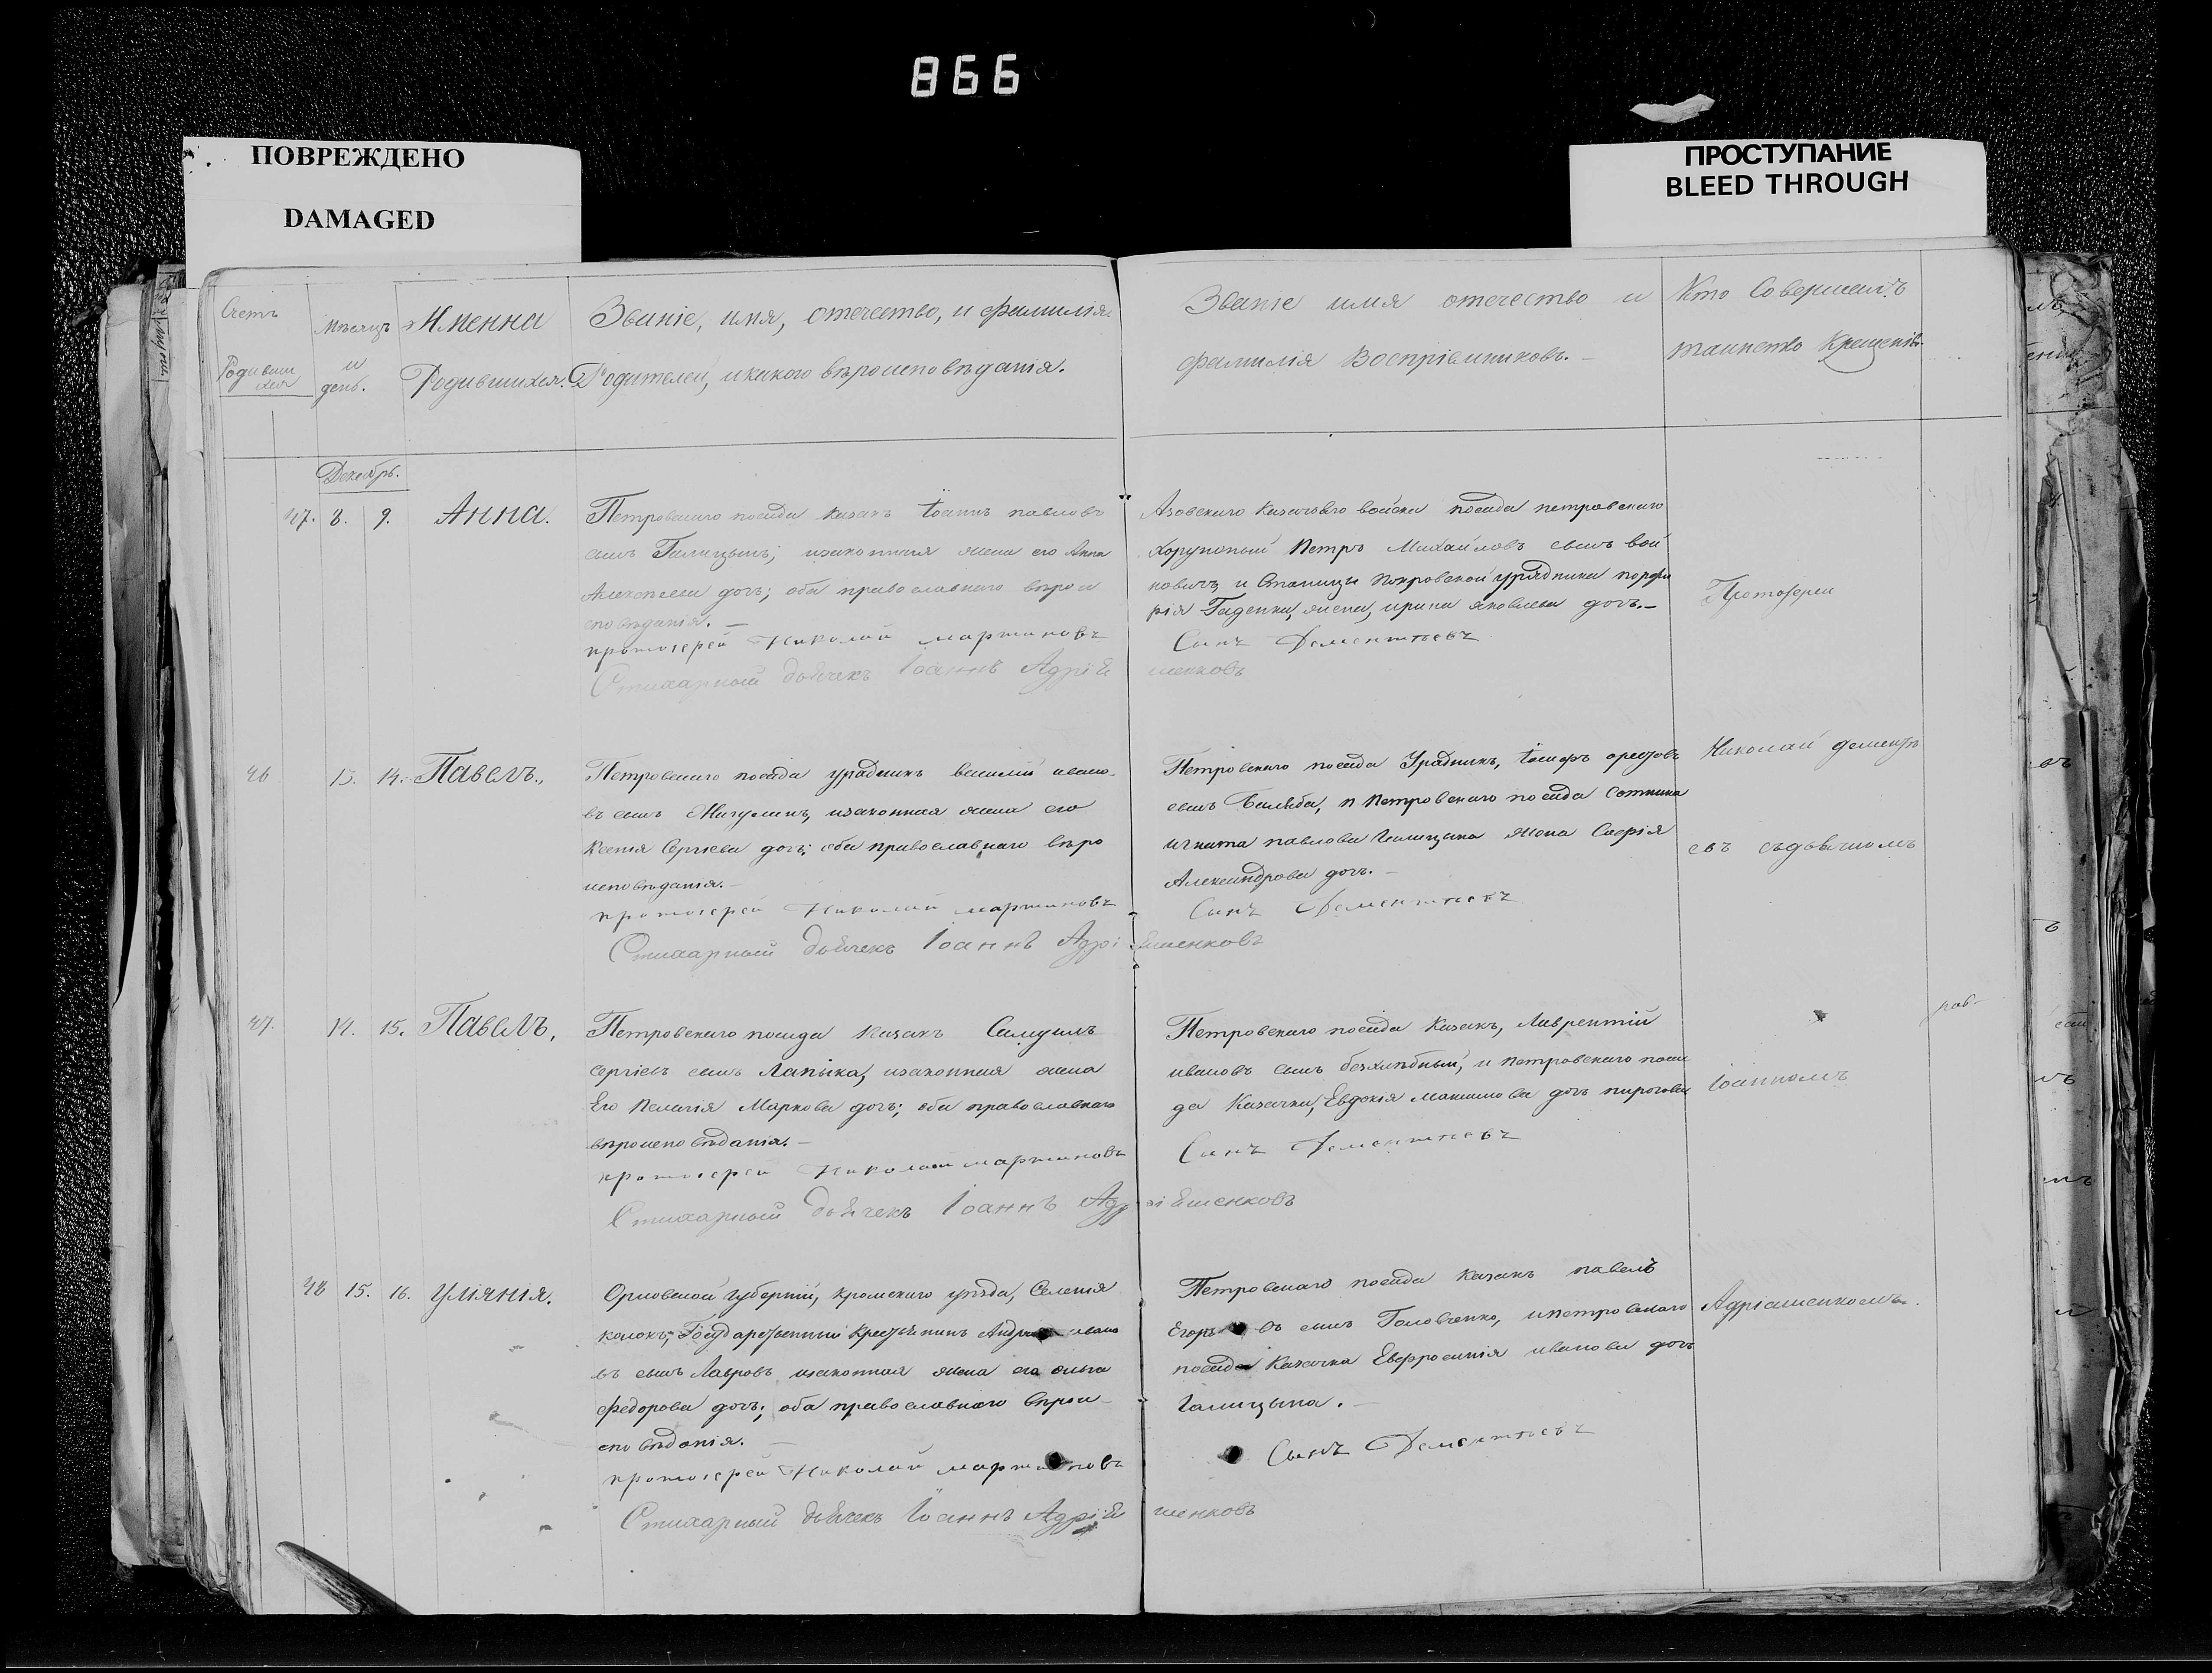 866
ПОВРЕЖДЕНО
DAMAGED
ПРОСТУПАНИЕ
BLEED THROUGH
Счетъ
Родивши
хся
Мѣсяцъ
и
день.
Именна
Родившихся.
Званіе, имя, отечество, и фамилія
Родителей, и какого вѣроисповѣданія.
Званіе имя отечество и
фамилія Воспріемниковъ.
Кто Совершилъ
таинство Крещенія
Декабрь.
47. 8. 9. Анна.
Петровскаго посада казакъ Іоаннъ павловъ
сынъ Галицынъ; изаконная жена его Анна
Алексѣева дочь; оба православнаго вѣрои
сповѣданія. —
протоіерей Николай мартиновъ
Стихарный дьячекъ Іоаннъ Адріе
Азовскаго Казачьяго войска посада петровскаго
Хорунжый Петръ Михайловъ сынъ вой
новичъ, и Станицы Покровской урядника порфи
рія Гаденки, жена, ирина яковлева дочь.—
Сынъ Дементьевъ
шенковъ
Протоіереи
46 13. 14. Павелъ.,
Петровскаго посада урядникъ василій ивано-
въ сынъ Мигулинъ, изаконная жена его
Ксенія Сергіева дочь; оба православнаго вѣро
исповѣданія.—
протоіерей Николай мартиновъ
Стихарный дьячекъ Іоаннъ Адрі
Петровскаго посада Урядникъ, Іосифъ орестовъ
сынъ Бальба, и Петровскаго посада Сотника
игната павлова Галицына жена Софія
Александрова дочь. —
Сынъ Дементьевъ
ешенковъ
Николай дементь
евъ съдьячкомъ
47. 14. 15. Павелъ.
Петровскаго посада казакъ Самуилъ
Сергіевъ сынъ Лапыка, изаконная жена
Его Пелагія Маркова дочь; оба православнаго
вѣроисповѣданія.—
протоіерей Николай мартиновъ
Стихарный дьячекъ Іоаннъ Адр
Петровскаго посада Казакъ, Лаврентій
ивановъ сынъ безхлѣбный, и петровскаго поса
да Казачка, Евдокія макимова дочь пирогова
Сынъ Дементьевъ
іешенковъ
Іоанномъ
48 15. 16. Уліянія.
Орловской губерніи, кромскаго уѣзда, Селенія
колокъ, Государственный Крестьянинъ Андрей ивано
въ сынъ Лавровъ изаконная жена его
федорова дочь; оба православнаго вѣрои-
сповѣданія. —
протоіерей Николай мартиновъ
Стихарный дьячекъ Іоаннъ Адріе
Петровскаго посада казакъ павелъ
Егоровъ сынъ Головченко, ипетровскаго
посада Казачка Евфросинія иванова дочь
Галицына. —
Сынъ Дементьевъ
шенковъ
Адріешенкомъ.